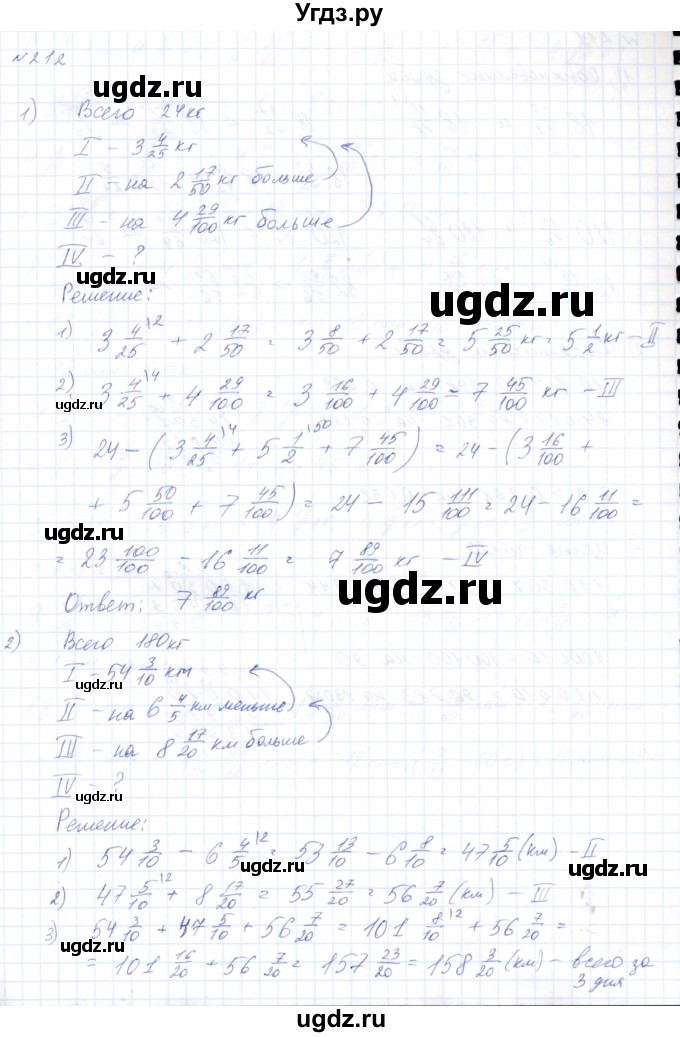 Угдз.ру
№212
ugdz.ru
1) Всего 24кг
I – 3 4/25 кг
II – на 2 17/50 кг больше
ugdz.ru
III – на 4 29/100 кг больше
IV – ?
ugdz.ru
Решение:
ugdz.ru
1) 3 4/25 \2 + 2 17/50 = 3 8/50 + 2 17/50 = 5 25/50 кг = 5 1/2 кг – II
2) 3 4/25 \4 + 4 29/100 = 3 16/100 + 4 29/100 = 7 45/100 кг – III
ugdz.ru
ugdz.ru
3) 24 – (3 4/25 \4 + 5 1/2 \50 + 7 45/100) = 24 – (3 16/100 +
+ 5 50/100 + 7 45/100) = 24 – 15 111/100 = 24 – 16 11/100 =
ugdz.ru
= 23 100/100 – 16 11/100 = 7 89/100 кг – IV
ugdz.ru
Ответ: 7 89/100 кг
ugdz.ru
2) Всего 180кг
I – 54 3/10 км
ugdz.ru
II – на 6 4/5 км меньше
III – на 8 17/20 км больше
ugdz.ru
IV – ?
ugdz.ru
Решение:
1) 54 3/10 – 6 4/5 \2 = 53 13/10 – 6 8/10 = 47 5/10 (км) – II
ugdz.ru
ugdz.ru
2) 47 5/10 \2 + 8 17/20 = 55 27/20 = 56 7/20 (км) – III
3) 54 3/10 + 47 5/10 + 56 7/20 = 101 8/10 \2 + 56 7/20 =
ugdz.ru
= 101 16/20 + 56 7/20 = 157 23/20 = 158 3/20 (км) – всего за
3 дня
ugdz.ru
ugdz.ru